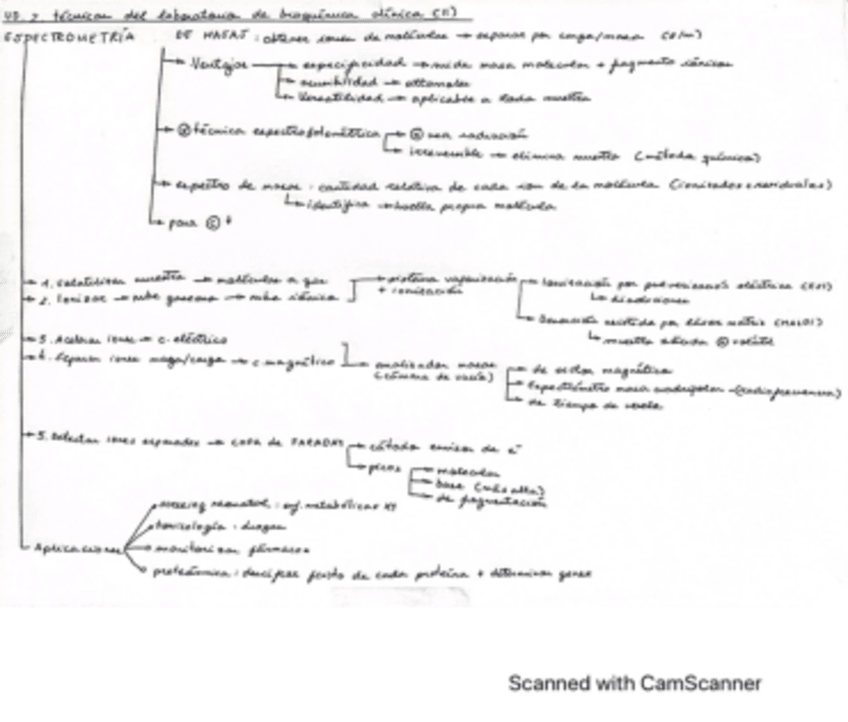 UD. 2 técnicas del laboratorio de bioquímica clínica (II)
ESPECTROMETRÍA DE MASAS : obtener iones de moléculas → separar por carga/masa
Ventajas → especificidad → mide masa molecular + fragmentos iónicos
sensibilidad → attomoles
versatilidad → aplicable a toda muestra
técnica espectrofotométrica → usa radiación
irreversible → elimina muestra (método químico)
espectro de masas : cantidad relativa de cada ion de la molécula
identifica → huella propia molécula
para
1. volatilizar muestra → moléculas a gas → sistema vaporización → Ionización por electrico (ESI)
2. Ionizar → nube gaseosa → nube iónica + ionización → disoluciones
Desorción asistida por láser matriz (MALDI)
→ muestra sólida volátil
3. Acelerar iones → c. eléctrico
4. Separar iones masa/carga → c. magnético → analizador masas → de sector magnético
(cámara de vacío) → espectrómetro masa cuadrupolar (radiofrecuencia)
→ de tiempo de vuelo
5. Detectar iones separados → COPA DE FARADAY → cátodo emisor de e⁻
picos → molecular
→ base (más alto)
→ de fragmentación
Aplicaciones
screening neonatal : enf. metabólicas
toxicología : drogas
monitorizar fármacos
proteómica : descifrar de cada proteína + determinar genes
Scanned with CamScanner